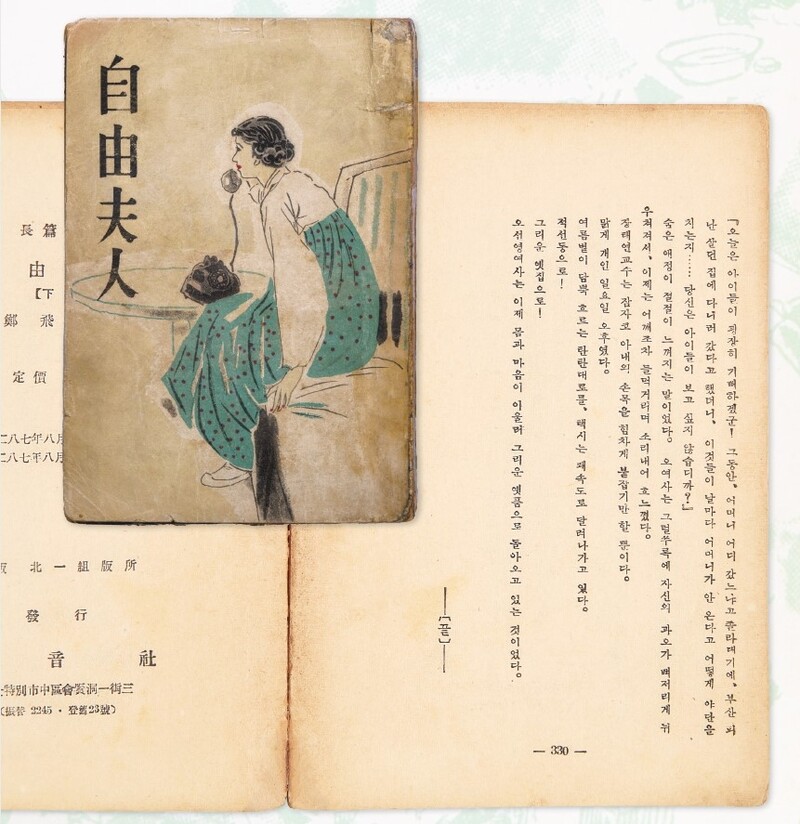 自由夫人
「오늘은 아이들이 굉장히 기뻐하겠군! 그동안、어머니 어디 갔느냐고 졸라대기에、부산 피
난 살던 집에 다니러 갔다고 했더니、이것들이 날마다 어머니가 안 온다고 어떻게 야단을
치는지…… 당신은 아이들이 보고 싶지 않습디까?」
숨은 애정이 절절이 느껴지는 말이었다。 오여사는 그럴쑤록에 자신의 과오가 뼈저리게 뉘
우쳐져서、이제는 어깨조차 들먹거리며 소리내어 흐느꼈다。
장태연교수는 잠자코 아내의 손목을 힘차게 붙잡기만 할 뿐이다。
맑게 개인 일요일 오후였다。
여름볕이 담뿍 흐르는 탄탄대로를、택시는 쾌속도로 달려나가고 있다。
적선동으로!
그리운 옛집으로!
오선영여사는 이제 몸과 마음이 아울러 그리운 옛품으로 돌아오고 있는 것이었다。
—[끝]—
— 330 —
長篇
由
【下
鄭飛
定價
二八七年八月
二八七年八月
北一組版所
發行
音社
特別市中區會賢洞一街三
(振替 2245・登錄23號)